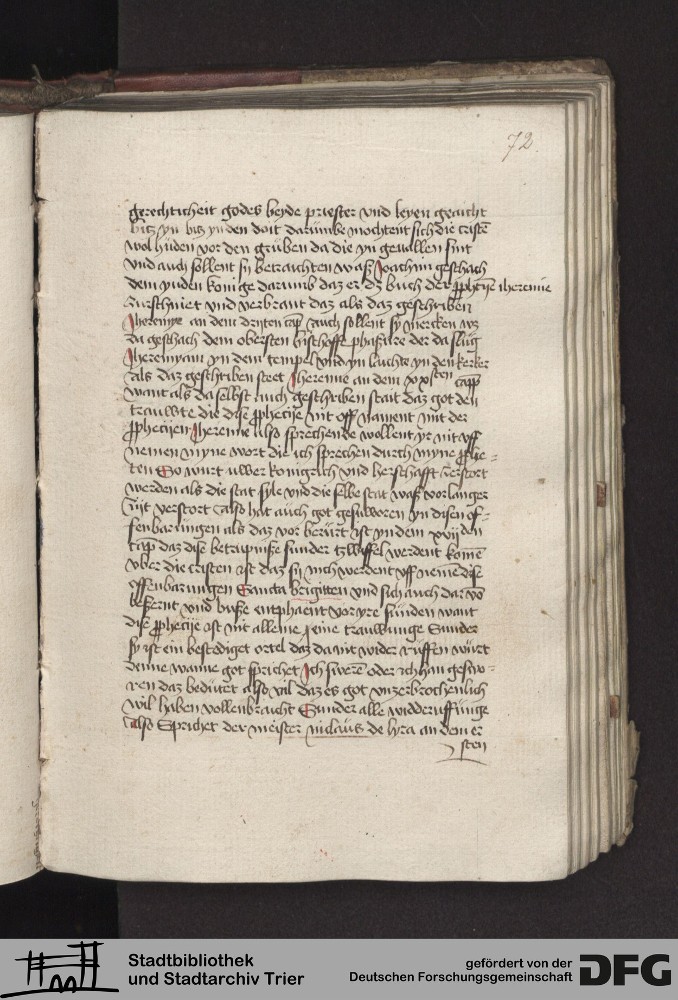 72.
gerechticheit godes beyde priester vnd leyen geacht
bitz yn bitz yn den doit darumbe mochtent sich die cristē
wol huden vor den gruben da die yn geuallen sint
vnd auch sollent sy betrachten waß Joachim geschach
dem yuden konige darumb daz er dz buch der ꝓphecijē iheremie
zurschniet vnd verbrant daz als daz geschriben
Jheremye an dem drijten cap auch sollent sy mercken wz
da geschach dem obersten bischoffe phassure der da slug
Jheremyam yn dem tempel vnd yn lachte yn den kerker
als daz geschriben steet Jheremie an dem xxsten capp
want als da selbst auch geschriben stait daz got den
trauwete die dise ꝓphecije nit off nament mit der
ꝓphecijen Jheremie also sprechende wollent yr nit vff
nemen myne wort die ich sprechen durch myne ꝓphe=
ten So wurt uwer konigrich vnd herschafft v̄stort
werden als die stat syle vnd die selbe stat waß vorlanger
zijt verstort also hat auch got gesworen yn disen of=
fenbarungen als daz vor berurt ist yn dem xvij den
cap daz dise betrupniße sunder tzwiffel werdent komē
vber die cristen ist daz sy nich werdent vff nemē dise
offenbarungen Sancta brigitten vnd sich auch dar vō
beßernt vnd buße entphaent vor yre sunden want
dise ꝓphecije ist nit alleine eine trauwunge Sunder
sy ist ein bestediget ortel daz da nit wider ruffen wurt
denne wanne got sprichet Ich swerē oder ich han geswo=
ren daz bedutet also vil daz es got vnzerbrochenlich
wil haben vollenbracht Sunder alle widderuffunge
also Sprichet der meister niclaus de lyra an dem er
sten
Stadtbibliothek
und Stadtarchiv Trier
gefördert von der
Deutschen Forschungsgemeinschaft
DFG